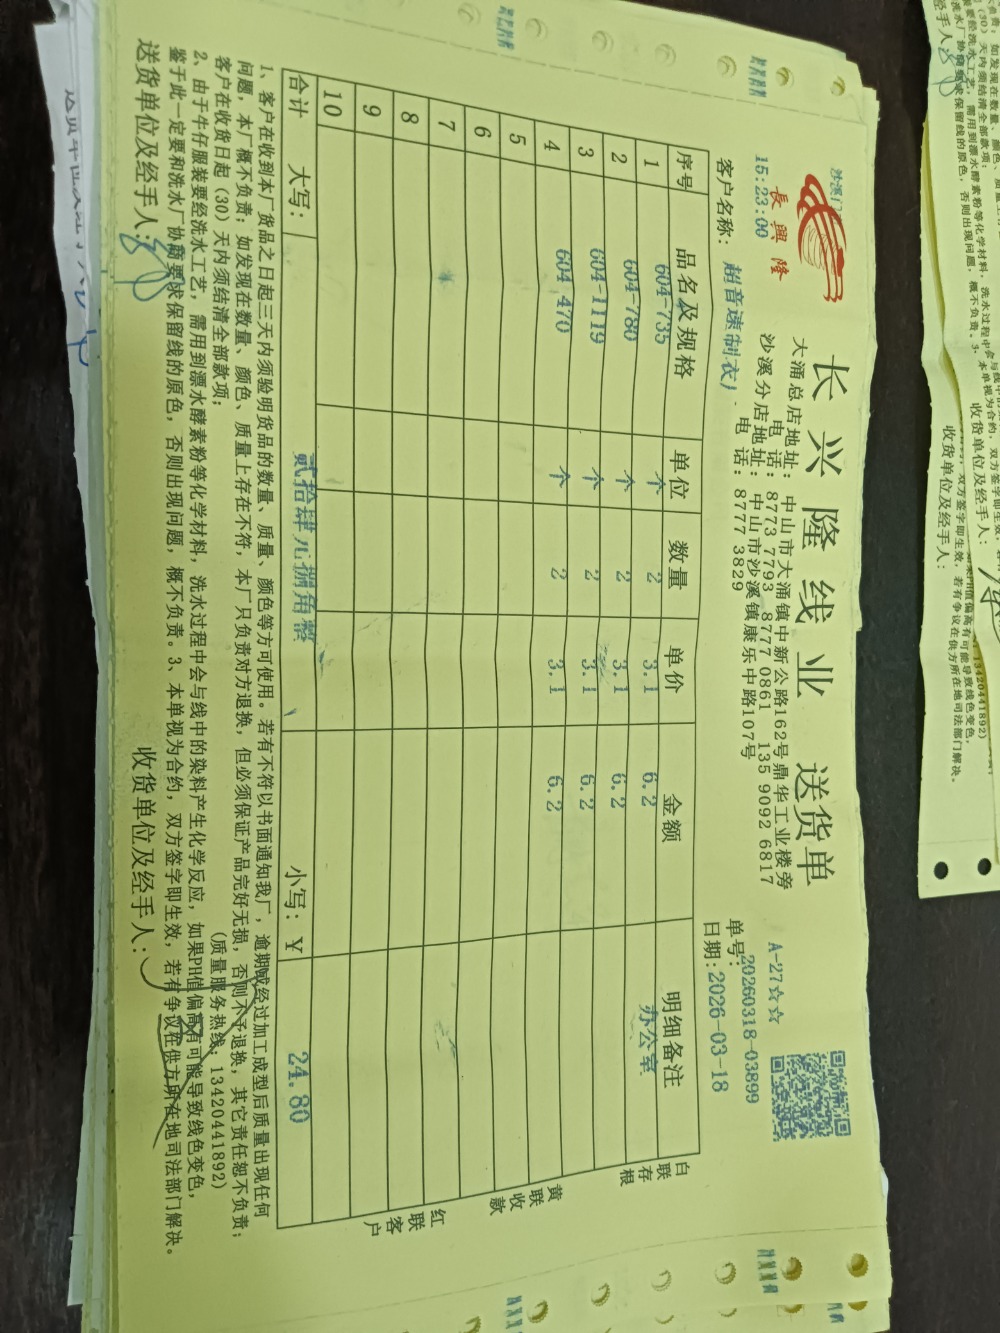 長興隆
长兴隆线业 送货单
大涌总店地址: 中山市大涌镇中新公路162号鼎华工业楼旁
电 话: 8773 7793 8777 0861 135 9092 6817
沙溪分店地址: 中山市沙溪镇康乐中路107号
电 话: 8777 3829
A-27☆☆
15:23:00
单号: 20260318-03899
客户名称: 超音速制衣厂
日期: 2026-03-18
序号 品名及规格 单位 数量 单价 金额 明细备注
1 604-735 个 2 3.1 6.2 办公室
2 604-780 个 2 3.1 6.2
3 604-1119 个 2 3.1 6.2
4 604-470 个 2 3.1 6.2
5
6
7
8
9
10
合计 大写: 贰拾肆元捌角整 小写: ¥ 24.80
白联存根
黄联收款
红联客户
1、客户在收到本厂货品之日起三天内须验明货品的数量、质量、颜色等方可使用。若有不符以书面通知我厂,逾期或经过加工成型后质量出现任何
问题,本厂概不负责;如发现在数量、颜色、质量上存在不符,本厂只负责对方退换,但必须保证产品完好无损,否则不予退换,其它责任恕不负责;
客户在收货日起(30)天内须结清全部款项; (质量服务热线:13420441892)
2、由于牛仔服装要经洗水工艺,需用到漂水酵素粉等化学材料,洗水过程中会与线中的染料产生化学反应,如果PH值偏高有可能导致线色变色,
鉴于此一定要和洗水厂协商要求保留线的原色,否则出现问题,概不负责。3、本单视为合约,双方签字即生效,若有争议在供方所在地司法部门解决。
送货单位及经手人: 收货单位及经手人:
13420441892)
收货单位及经手人:
收货单位及经手人: